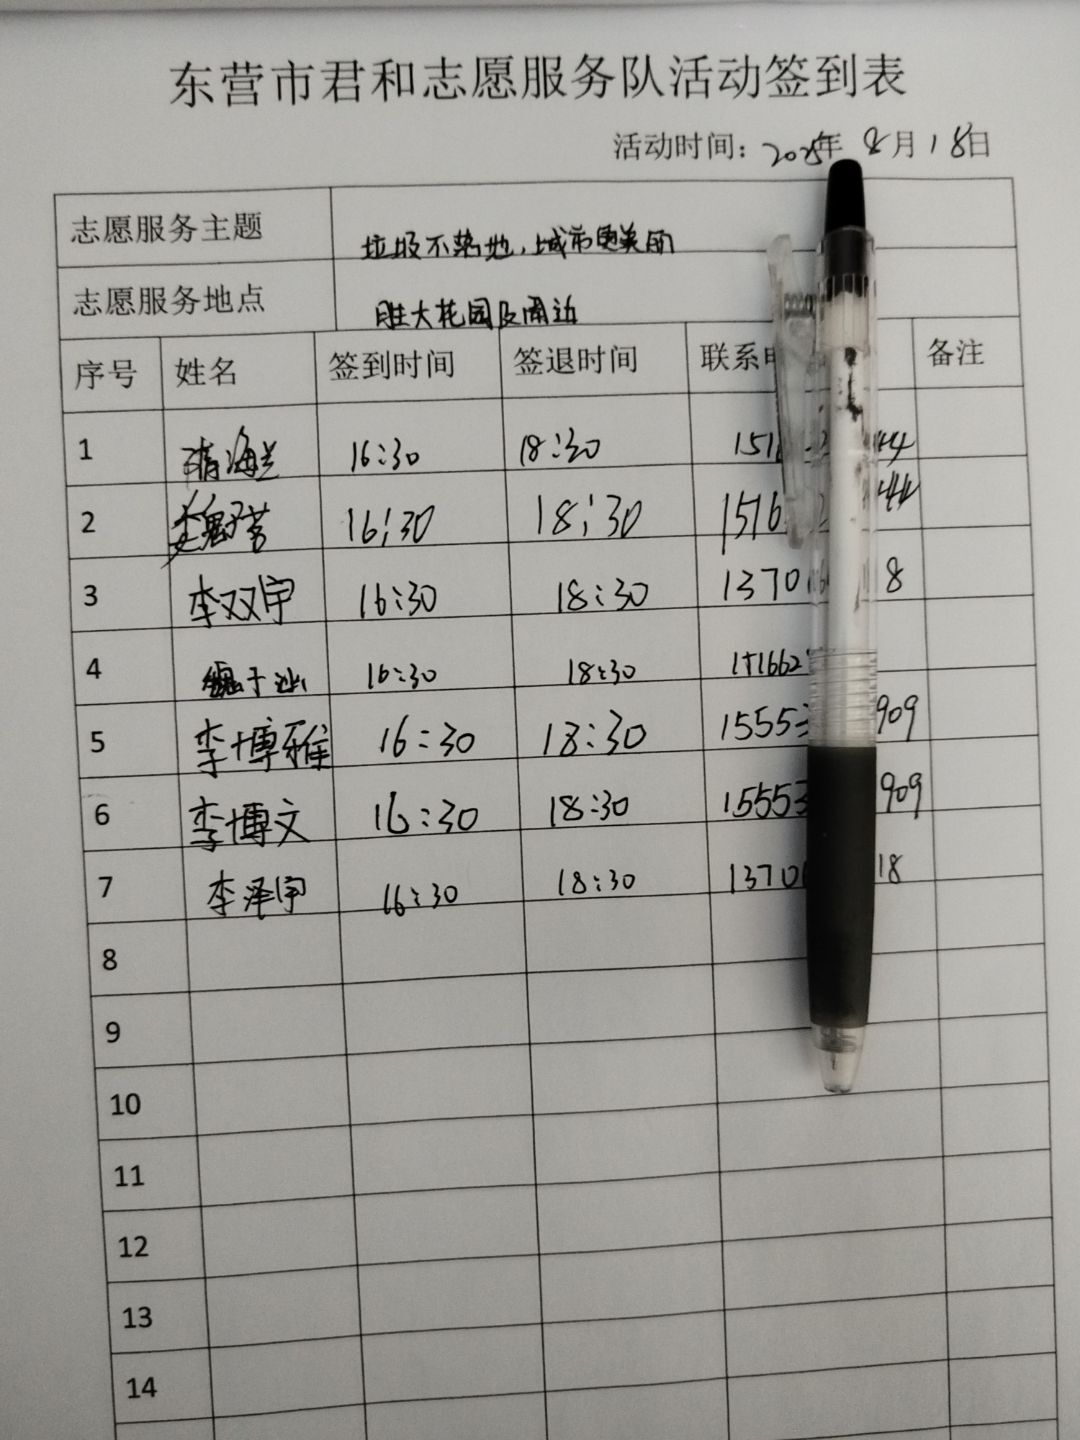 东营市君和志愿服务队活动签到表
活动时间：2025年 8月18日
志愿服务主题 垃圾不落地，城市更美丽
志愿服务地点 胜大花园及周边
序号 姓名 签到时间 签退时间 联系 备注
1 海兰 16:30 18:30 151 44
2 魏 芳 16:30 18:30 1516 44
3 李双宇 16:30 18:30 1370 8
4 魏子 16:30 18:30 1662
5 李博雅 16:30 18:30 15553 909
6 李博文 16:30 18:30 15553 909
7 李泽宇 16:30 18:30 1370 18
8
9
10
11
12
13
14